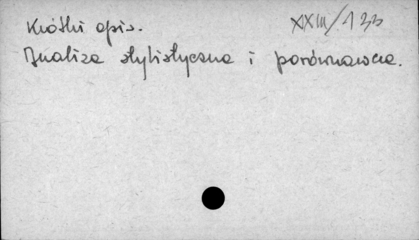 Krótki opis. XXIII/133
Analiza stylistyczna i porównawcza.